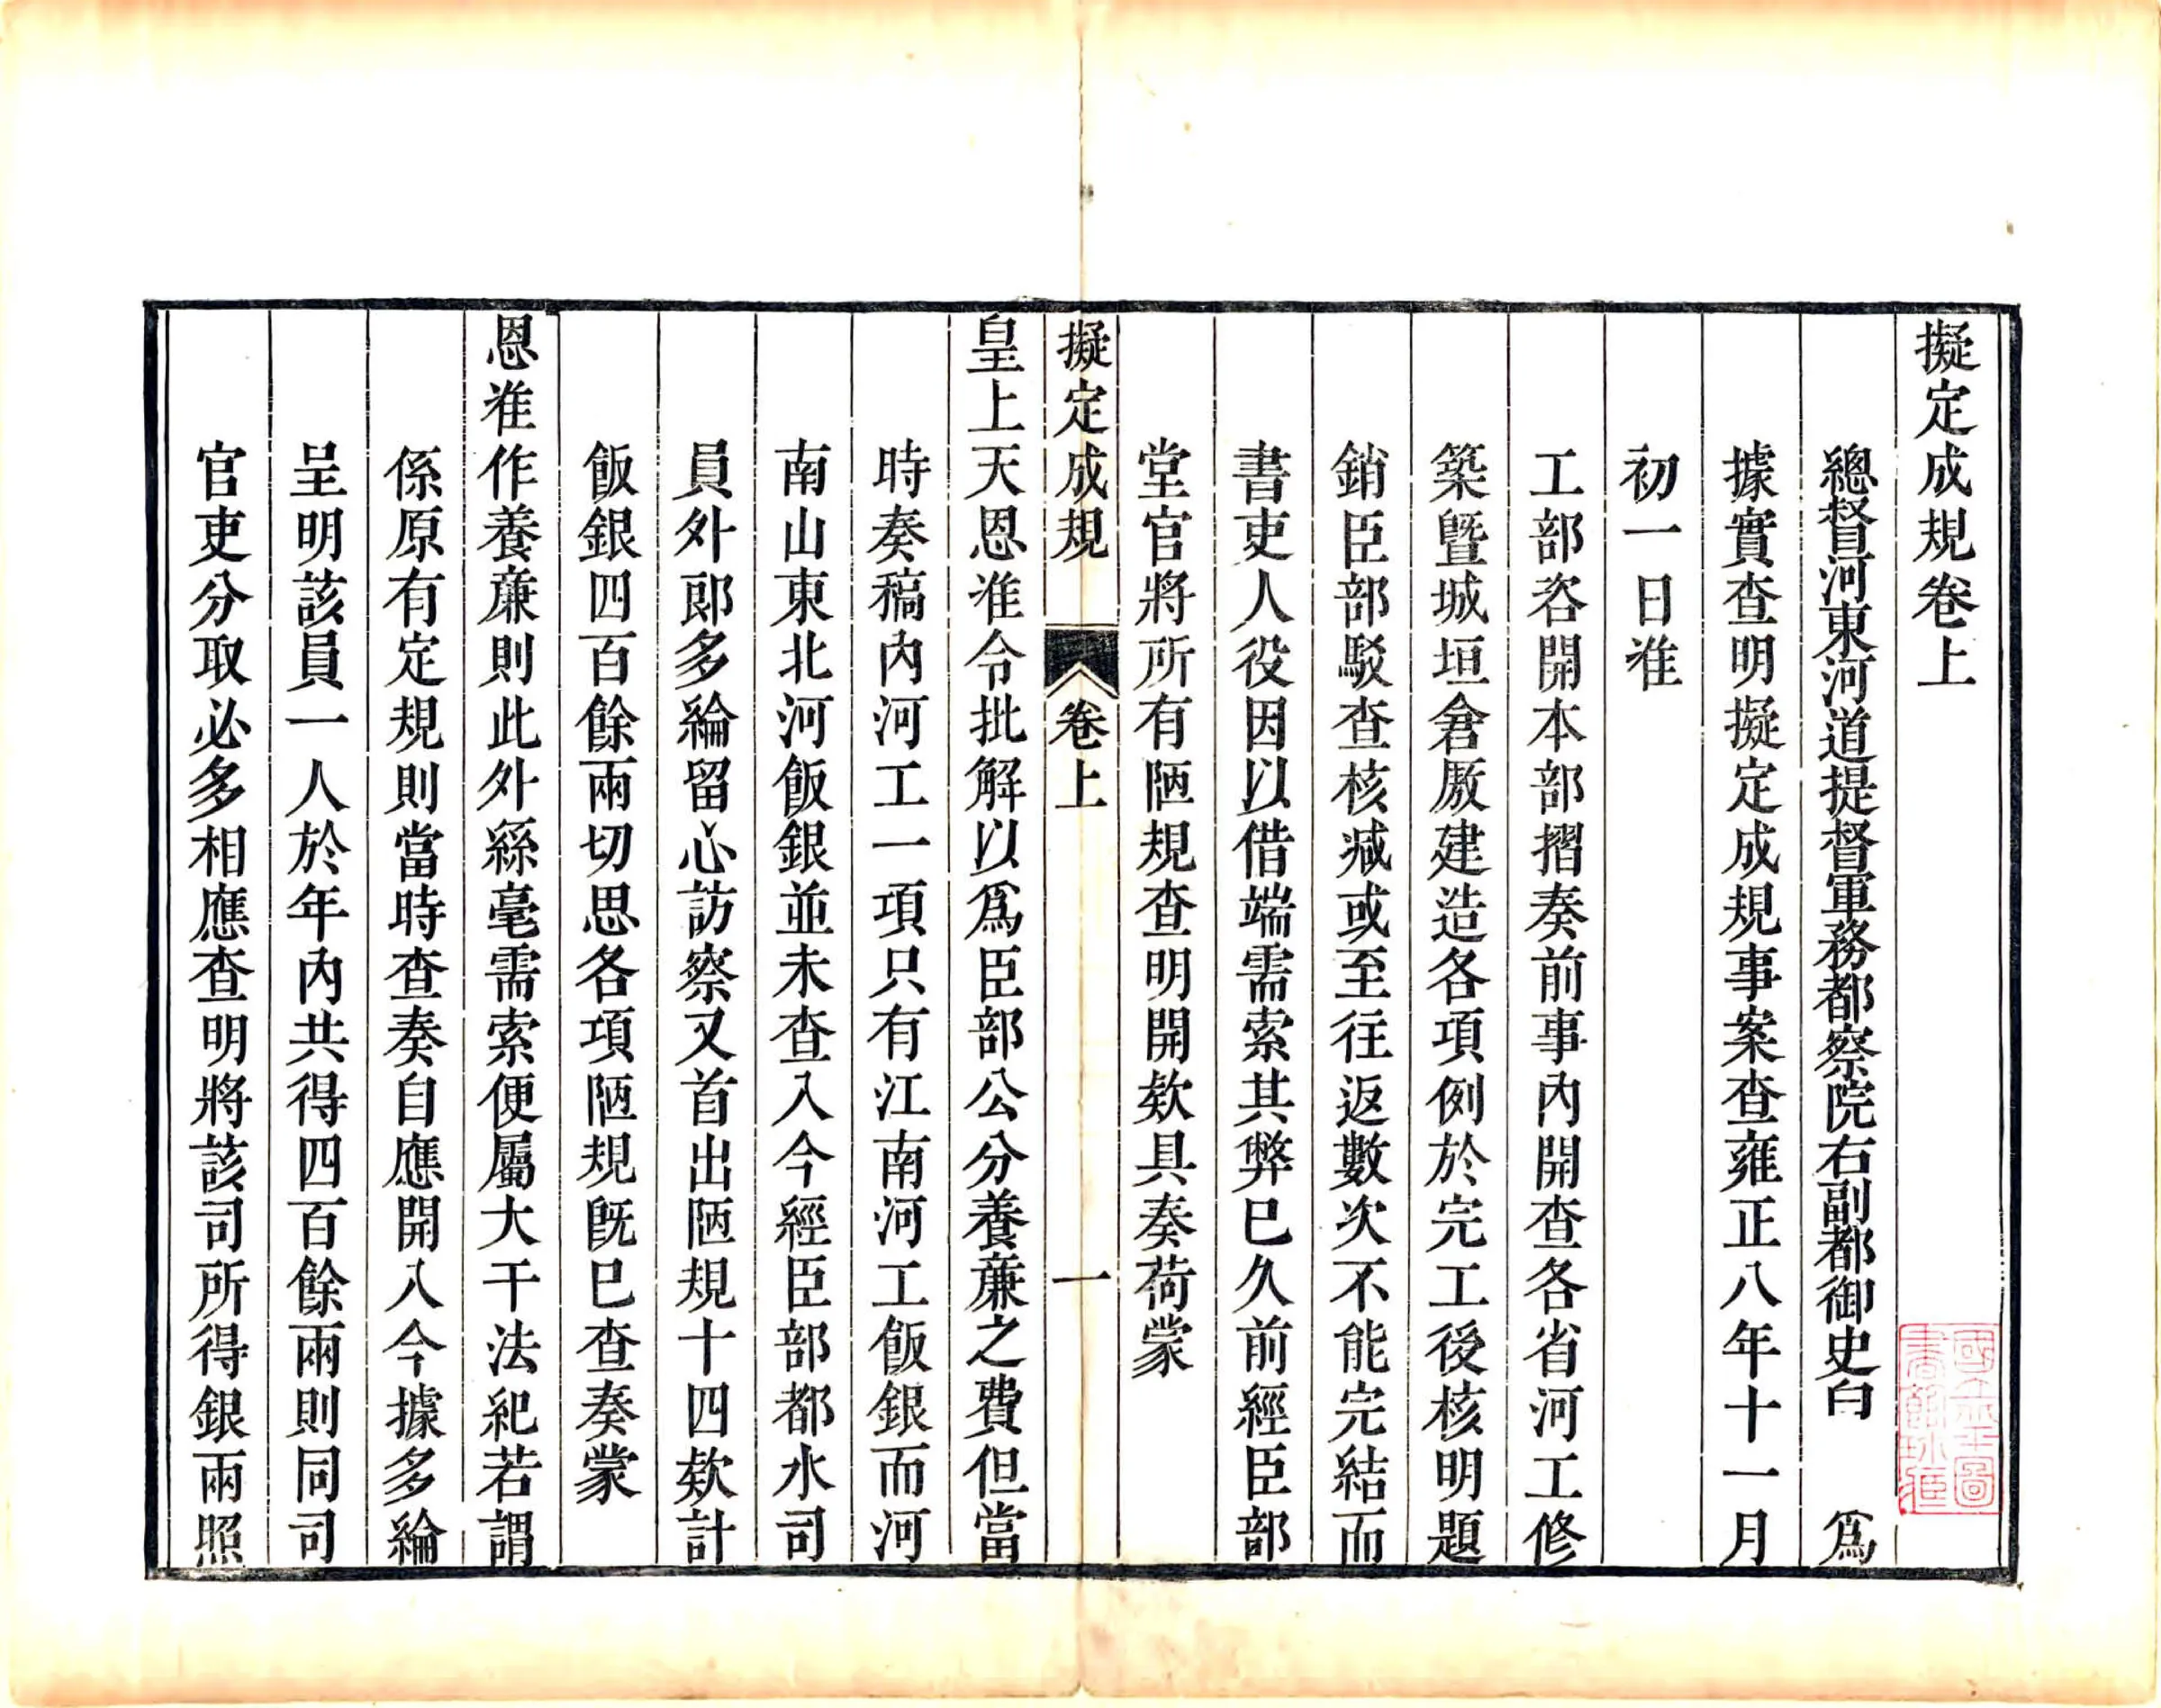 擬定成規卷上
總督河東河道提督軍務都察院右副都御史白　爲
據實查明擬定成規事案查雍正八年十一月
初一日准
工部咨開本部摺奏前事內開查各省河工修
築曁城垣倉厫建造各項例於完工後核明題
銷臣部駁查核减或至往返數次不能完結而
書吏人役因以借端需索其弊已久前經臣部
堂官將所有陋規查明開欵具奏荷蒙
擬定成規　卷上　一
皇上天恩准令批解以爲臣部公分養㢘之費但當
時奏稿內河工一項只有江南河工飯銀而河
南山東北河飯銀並未查入今經臣部都水司
員外郎多綸留心訪察又首出陋規十四欵計
飯銀四百餘兩切思各項陋規旣已查奏蒙
恩准作養㢘則此外絲毫需索便屬大干法紀若謂
係原有定規則當時查奏自應開入今據多綸
呈明該員一人於年內共得四百餘兩則同司
官吏分取必多相應查明將該司所得銀兩照
國立北平圖
書館珍藏